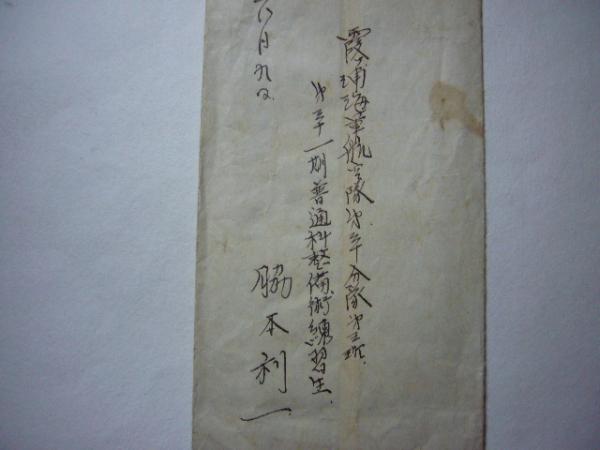 霞ヶ浦海軍航空隊第三十分隊第三班
第三十一期普通科整備術練習生
脇本利一
六月九日